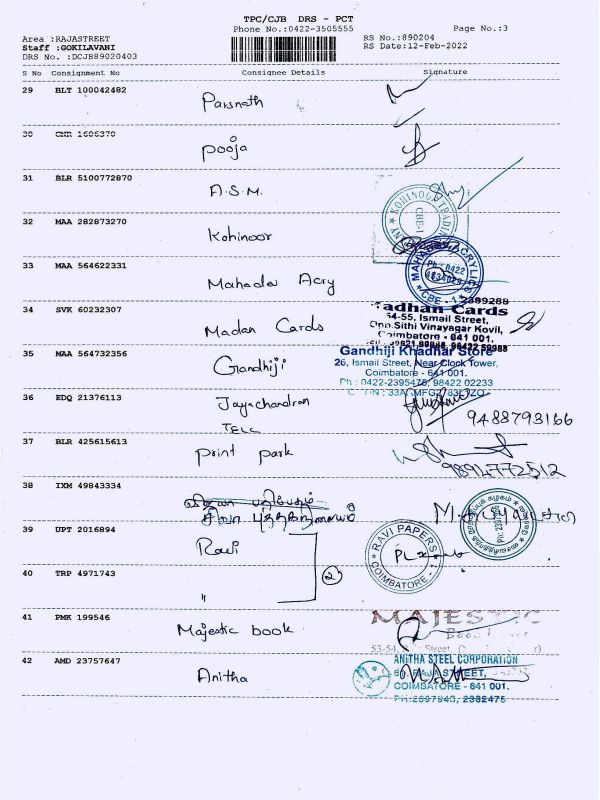 TPC/CJB DRS - PCT
Phone No.:0422-3505555
Page No.:3
Area :RAJASTREET
Staff :GOKILAVANI
DRS No. :DCJB89020403
RS No.:890204
RS Date:12-Feb-2022
S No Consignment No Consignee Details Signature
29 BLT 100042482 Parsnath
30 1606370 Pooja
31 BLR 5100772870 A.S.M.
KOHINOOR TRADING
CBE-1
32 MAA 282873270 Kohinoor
33 MAA 564622331 Mahadev Acry
MAHADEV ACRYLICS
Ph: 0422
CBE - 1
2399288
34 SVK 60232307 Madan Cards
Cards
54-55, Ismail Street,
Opp.Sithi Vinayagar Kovil,
Coimbatore - 641 001.
35 MAA 564732356 Gandhiji
Gandhiji Khadhar Store
26, Ismail Street, Near Clock Tower,
Coimbatore - 641 001.
Ph : 0422-2395475, 98422 02233
36 EDQ 21376113 Jayachandran
TELC
9488793166
37 BLR 425615613 Print park
9894772512
38 IXM 49843334
சிவா புத்தகநிலையம்
39 UPT 2016894 Ravi
RAVI PAPERS
COIMBATORE - 1
40 TRP 4971743 "
2
41 PMK 199546 Majestic book
MAJESTIC
53-54,
42 AMD 23757647 Anitha
ANITHA STEEL CORPORATION
RAJA STREET,
COIMBATORE - 641 001.
PH:2397943, 2382475